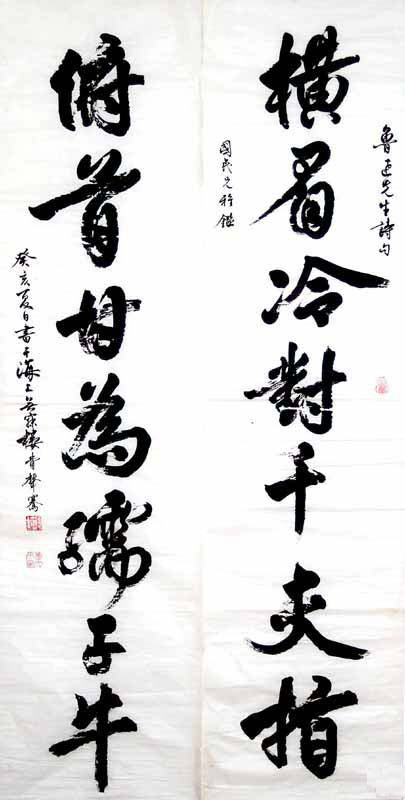 魯迅先生詩句
橫眉冷對千夫指
國民兄雅鑑
俯首甘為孺子牛
癸亥夏日書于海上